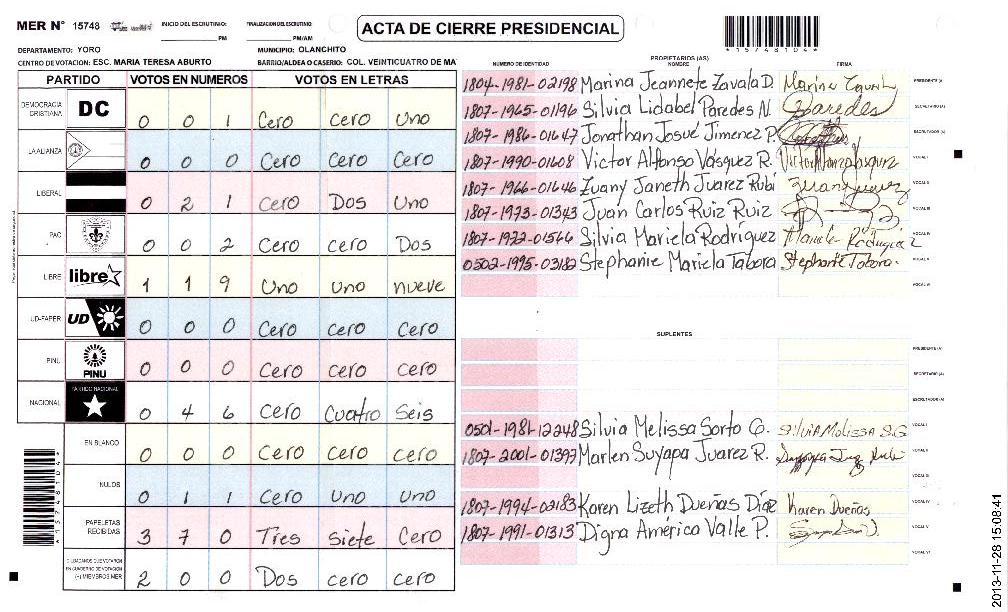 MER N° 15748 INICIO DEL ESCRUTINIO: PM FINALIZACION DEL ESCRUTINIO: PM/AM
ACTA DE CIERRE PRESIDENCIAL
*15748104*
DEPARTAMENTO: YORO MUNICIPIO: OLANCHITO
CENTRO DE VOTACION: ESC. MARIA TERESA ABURTO BARRIO/ALDEA O CASERIO: COL. VEINTICUATRO DE MA
PARTIDO VOTOS EN NUMEROS VOTOS EN LETRAS
DEMOCRACIA CRISTIANA DC 0 0 1 Cero cero uno
LA ALIANZA 0 0 0 Cero Cero Cero
LIBERAL 0 2 1 Cero Dos Uno
PAC 0 0 2 Cero cero Dos
LIBRE libre 1 1 9 Uno uno nueve
UD-FAPER UD 0 0 0 Cero cero Cero
PINU PINU 0 0 0 Cero cero cero
NACIONAL PARTIDO NACIONAL 0 4 6 Cero Cuatro Seis
EN BLANCO 0 0 0 Cero cero cero
NULOS 0 1 1 Cero uno uno
PAPELETAS RECIBIDAS 3 7 0 Tres Siete Cero
CIUDADANOS QUE VOTARON EN CUADERNO DE VOTACION (+) MIEMBROS MER 2 0 0 Dos cero cero
*15748104*
PROPIETARIOS (AS)
NUMERO DE IDENTIDAD NOMBRE FIRMA
1804-1981-02198 Marina Jeannete Zavala D. PRESIDENTE (A)
1807-1965-01196 Silvia Lidabel Paredes N. Paredes SECRETARIO (A)
1807-1986-01647 Jonathan Josué Jimenez P. ESCRUTADOR (A)
1807-1990-01608 Victor Alfonso Vásquez R. VOCAL I
1807-1966-01646 Zuany Janeth Juarez Rubi VOCAL II
1807-1973-01343 Juan Carlos Ruiz Ruiz VOCAL III
1807-1972-01566 Silvia Mariela Rodríguez Mariela Rodriguez VOCAL IV
0502-1995-03182 Stephanie Mariela Tabora Stephanie Tabora VOCAL V
VOCAL VI
SUPLENTES
PRESIDENTE (A)
SECRETARIO (A)
ESCRUTADOR (A)
0501-1981-12248 Silvia Melissa Sorto G. SILVIA MELISSA S.G VOCAL I
1807-2001-01397 Marlen Suyapa Juarez R. VOCAL II
VOCAL III
1807-1994-02183 Karen Lizeth Dueñas Díaz Karen Dueñas VOCAL IV
1807-1991-01313 Digna América Valle P. VOCAL V
VOCAL VI
2013-11-28 15:08:41